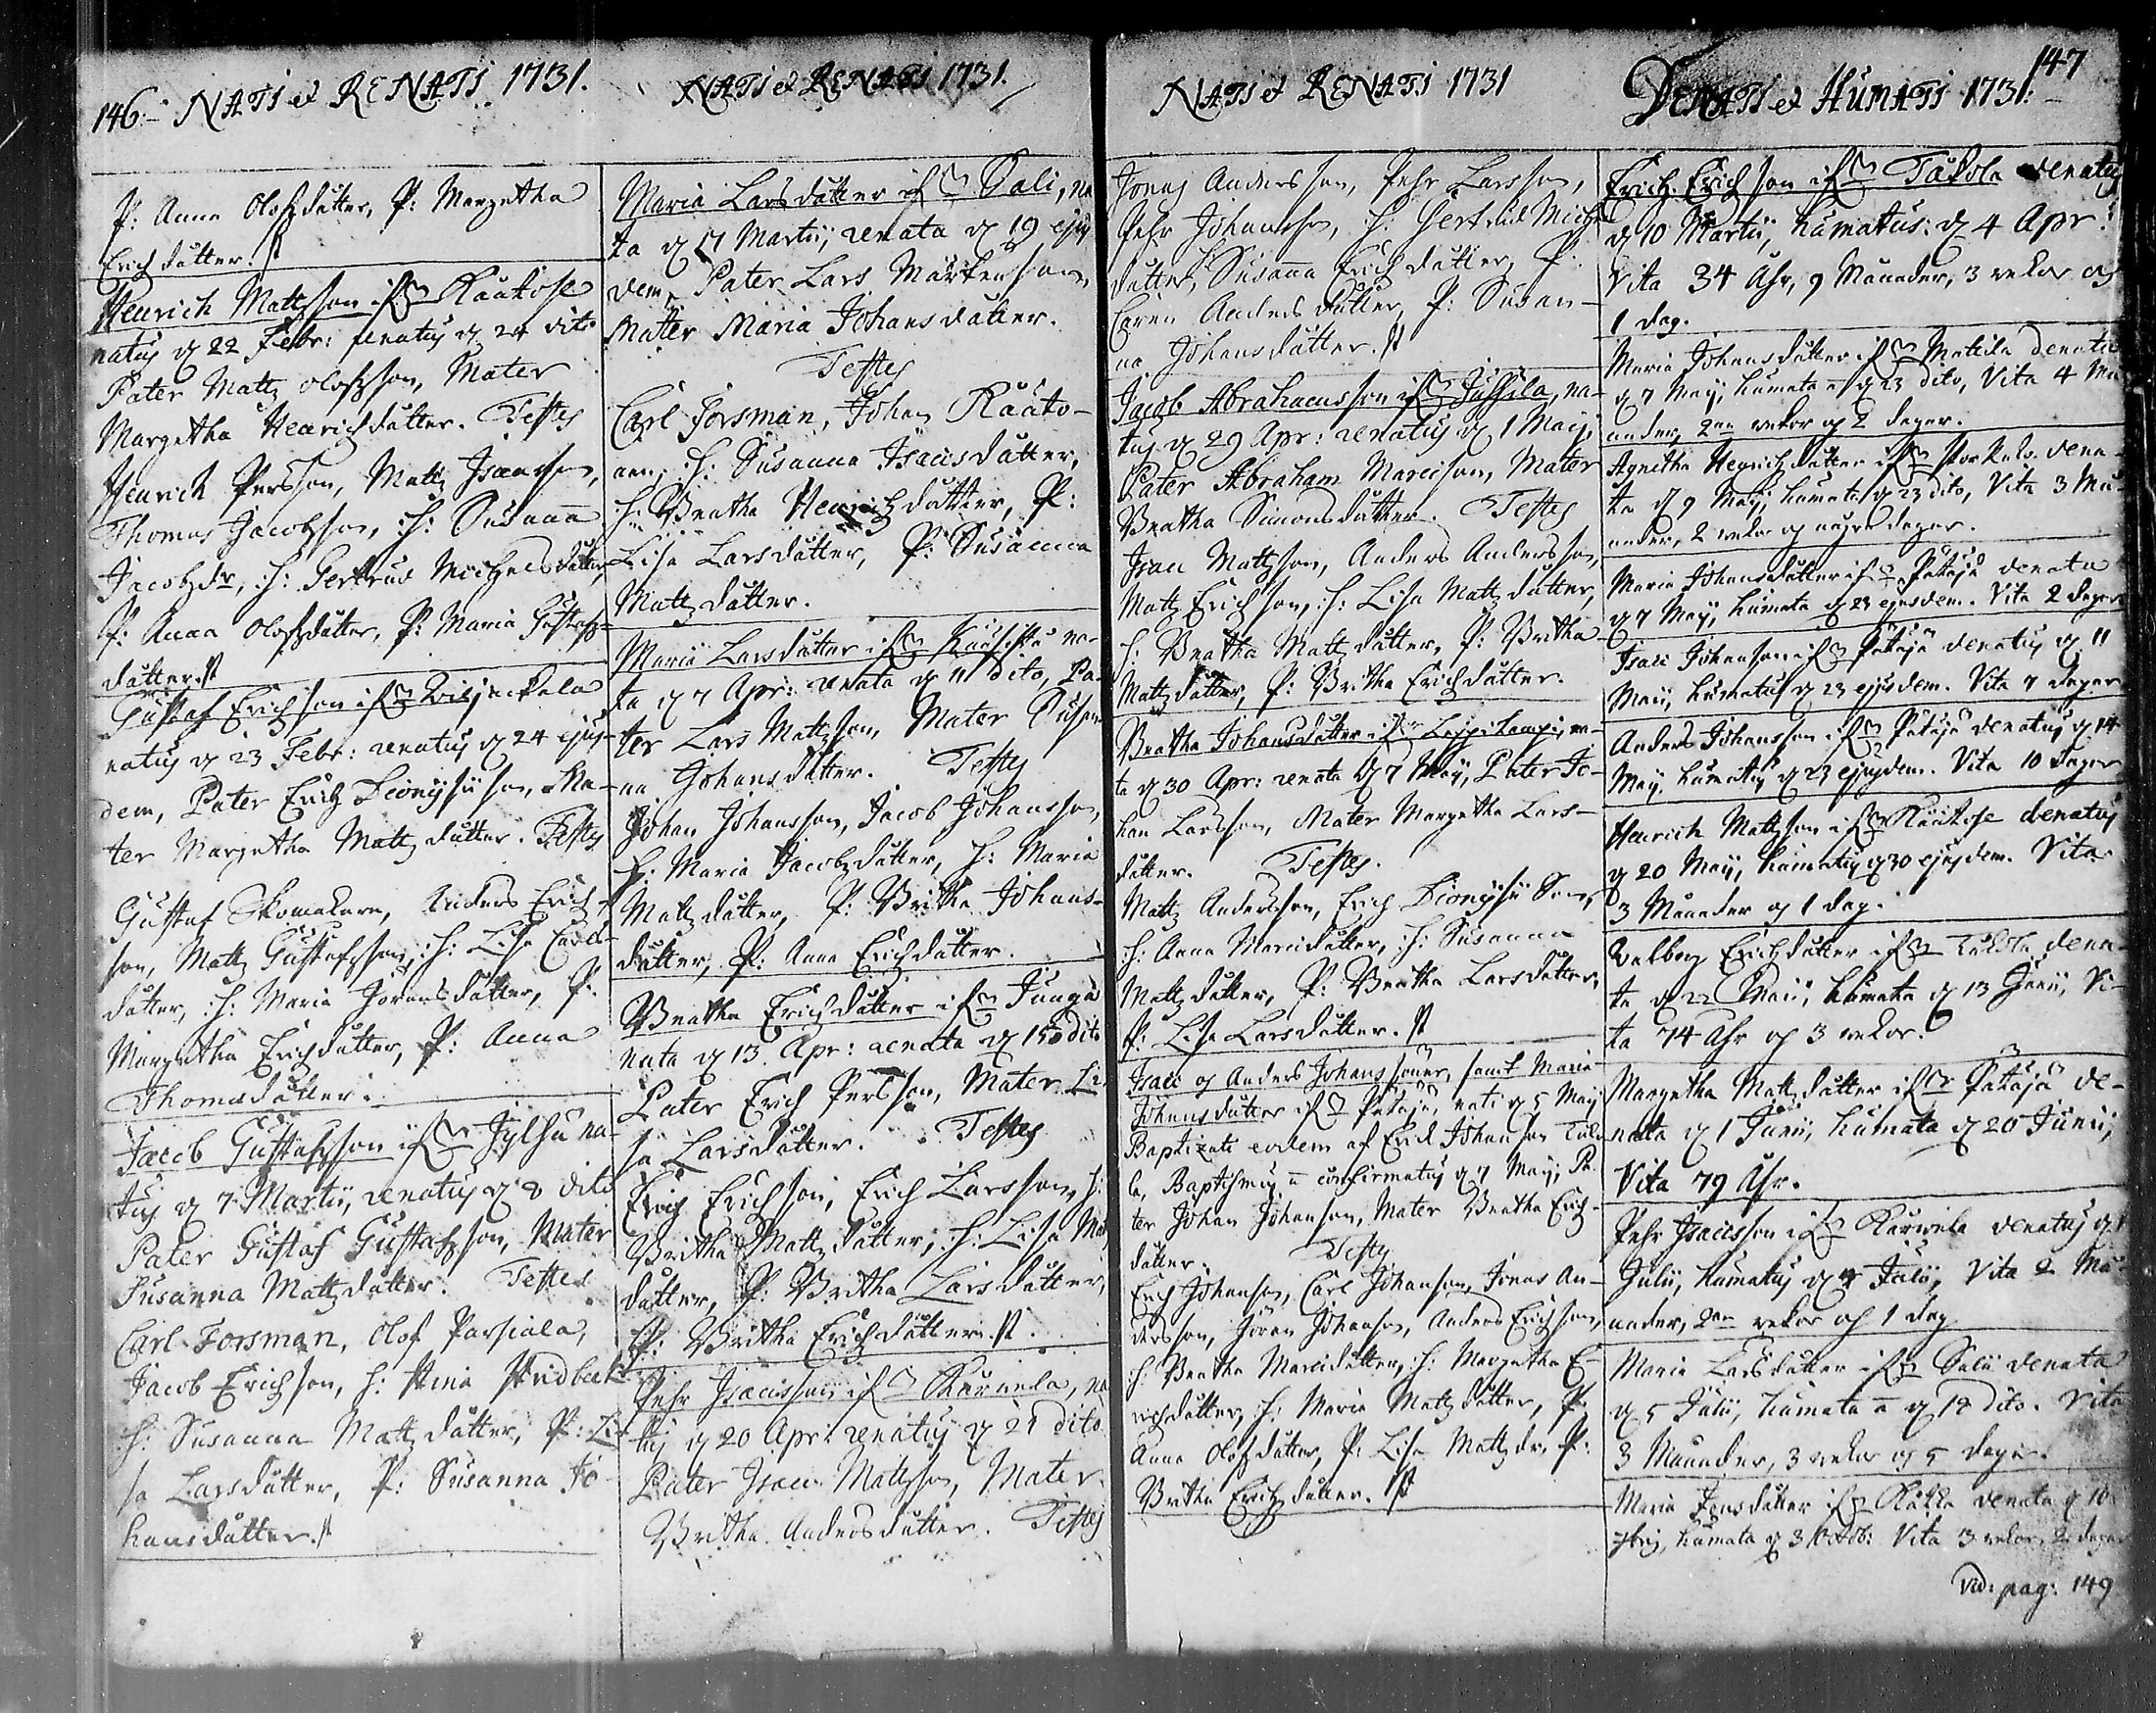 146:- NATI et RENATI 1731.
P: Anna Olofzdåtter, P: Margetha
Erichdåtter.
Henrich Mattzson if Kautose
natus d 22 Febr: renatus d 24 dito
Pater Mattz Olofzson, Mater
Margetha Henrichdåtter. Testes
Henrich Persson, Mattz Isacsson,
Thomas Jacobzson, H: Susanna
Jacobzdr, H: Gertrud Michelsdåtter,
P: Anna Olofzdåtter, P: Maria Gustafz-
dåtter.
Gustaf Erichson if
natus d 23 Febr: renatus d 24 ejus-
dem, Pater Erich Dionysii son, Ma-
ter Margetha Mattzdåtter. Testes
Gustaf Skomakare, Anders Erich-
son, Mattz Gustafzson, H: Lisa Carls-
dåtter, H: Maria Jöransdåtter, P:
Margetha Erichdåtter, P: Anna
Thomasdåtter.
Jacob Gustafzson if Jylhä na-
tus d 7 Martii, renatus d 8 dito
Pater Gustaf Gustafzson, Mater
Susanna Mattzdåtter. Testes
Carl Forsman, Olof Parsiala,
Jacob Erichson, H: Stina
H: Susanna Mattzdåtter, P: Li-
sa Larsdåtter, P: Susanna Jo-
hansdåtter.
NATI et RENATI 1731.
Maria Larsdåtter if Sali, na
ta d 17 Martii, renata d 19 ejus
dem, Pater Lars Mårtenson,
Mater Maria Johansdåtter.
Testes
Carl Forsman, Johan Kauto-
nen, H: Susanna Isacsdåtter,
H: Beatha Henrichdåtter, P:
Lisa Larsdåtter, P: Susanna
Mattzdåtter.
Maria Larsdåtter if na-
ta d 7 Apr: renata d 11 dito, Pa-
ter Lars Mattzson, Mater Susan-
na Johansdåtter. Testes
Johan Johansson, Jacob Johansson,
H: Maria Jacobzdåtter, H: Maria
Mattzdåtter, P: Britha Johans-
dåtter, P: Anna Erichdåtter.
Beatha Erichdåtter if Junga
nata d 13 Apr: renata d 15 dito
Pater Erich Persson, Mater Li-
sa Larsdåtter. Testes
Erich Erichson, Erich Larsson, H:
Britha Mattzdåtter, H: Lisa Mattz
dåtter, P: Britha Larsdåtter,
P: Britha Erichdåtter.
Pehr Isacsson if Karvala, na
tus d 20 Apr: renatus d 21 dito
Pater Isac Mattzson, Mater
Britha Andersdåtter. Testes
NATI et RENATI 1731
Jonas Andersson, Pehr Larsson,
Pehr Johansson, H: Gertrud Mich-
dåtter, Susanna Erichdåtter, P:
Caren Andersdåtter, P: Susan-
na Johansdåtter.
Jacob Abrahamsson if Jussila, na-
tus d 29 Apr: renatus d 1 Maij,
Pater Abraham Marcison, Mater
Beatha Simonsdåtter. Testes
Isac Mattzson, Anders Andersson,
Mattz Erichson, H: Lisa Mattzdåtter,
H: Beatha Mattzdåtter, P: Britha
Mattzdåtter, P: Britha Erichdåtter.
Beatha Johansdåtter if Leppilampi, na-
ta d 30 Apr: renata d 7 Maij, Pater Jo-
han Larsson, Mater Margetha Lars-
dåtter. Testes.
Mattz Andersson, Erich Dionysii Son,
H: Anna Marcidåtter, H: Susanna
Mattzdåtter, P: Beatha Larsdåtter,
P: Lisa Larsdåtter.
Isac og Anders Johans söner, samt Maria
Johansdåtter if Pätäjä, nati d 5 Maij
Baptizati eodem af Erich Johanson
la, Baptismus confirmatus d 7 Maij, Pa-
ter Johan Johanson, Mater Beatha Erich-
dåtter. Testes
Erich Johanson, Carl Johanson, Jonas An-
dersson, Jöran Johanson, Anders Erichson,
H: Beatha Marcidåtter, H: Margetha E-
richdåtter, H: Maria Mattzdåtter, P:
Anna Olofzdåtter, P: Lisa Mattzdr, P:
Britha Erichdåtter.
147
DENATI et HUMATI 1731:-
Erich Erichson if Takola denatus
d 10 Martii, humatus d 4 Apr:
Vita 34 Åhr, 9 Månader, 3 wekor og
1 dag.
Maria Johansdåtter if Mattila denata
d 7 Maij, humata d 23 dito, Vita 4 Må-
nader, 2 wekor og 2 dagar.
Agnetha Henrichdåtter if dena-
ta d 9 Maij, humata d 23 dito, Vita 3 Må-
nader, 2 wekor og några dagar.
Maria Johansdåtter if Pätäjä denata
d 7 Maij, humata d 23 ejusdem. Vita 2 dagar
Isac Johanson if Pätäjä denatus d 11
Maij, humatus d 23 ejusdem. Vita 7 dagar
Anders Johansson if Pätäjä denatus d 14
Maij, humatus d 23 ejusdem. Vita 10 dagar
Henrich Mattzson if Kautose denatus
d 20 Maij, humatus d 30 ejusdem. Vita
3 Månader og 1 dag.
Walborg Erichdåtter if dena-
ta d 22 Maij, humata d 13 Junii, Vi-
ta 74 Åhr og 3 wekor.
Margetha Mattzdåtter if Pätäjä de-
nata d 1 Junii, humata d 20 Junii,
Vita 79 Åhr.
Pehr Isacsson if Karvala denatus d 1
Julii, humatus d 4 Julii, Vita 2 Må-
nader, 2 wekor og 1 dag
Maria Larsdåtter if Sali denata
d 5 Julii, humata d 18 dito. Vita
3 Månader, 3 wekor og 5 dagar.
Maria Jonsdåtter if denata d 10
humata d 3 Octob: Vita 3 wekor, 2 dagar
vid: pag: 149